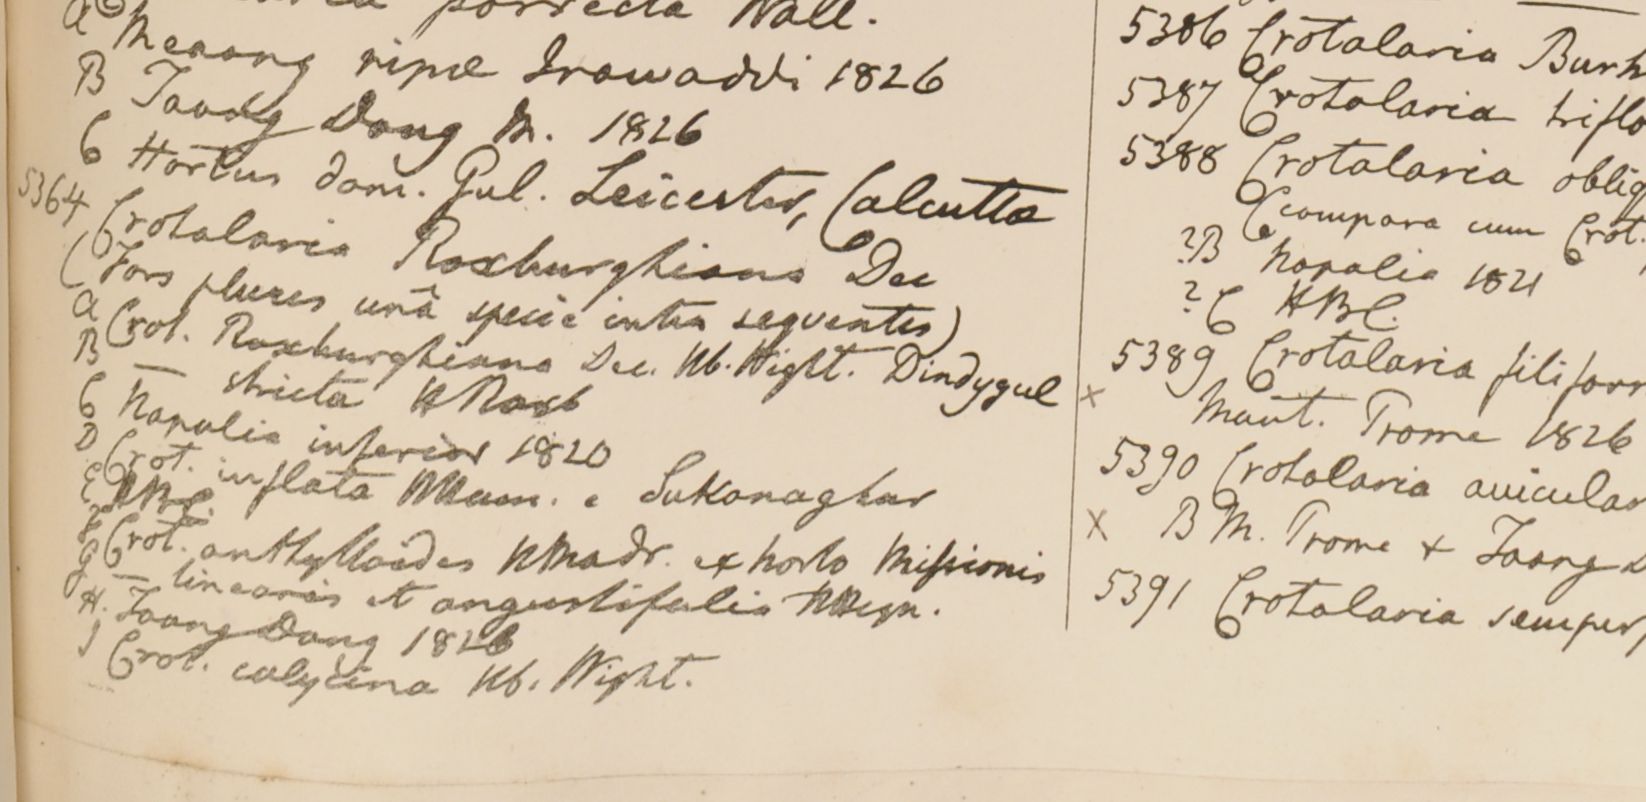 porrecta Wall.
a Meaong ripae Irawaddi 1826
B Taong Dong M. 1826
C Hortus dom. Gul. Leicester, Calcutta
5364 Crotalaria Roxburghiana Dec
(Fors plures unâ specie inter sequentes)
a Crot. Roxburghiana Dec. Hb. Wight. Dindygul
B — stricta H Roxb
C Napalia inferior 1820
D Crot. inflata HHam. e Sukanaghar
E HBC.
F Crot. anthylloides HMadr. ex horto Missionis
G — linearis et angustifolia HHeyn.
H. Taong Dong 1826
I Crot. calycina Hb. Wight.
5386 Crotalaria Burh
5387 Crotalaria triflo
5388 Crotalaria obliq
(compara cum Crot.
?B Napalia 1821
? C HBC.
5389 Crotalaria filiform
x Mont. Prome 1826
5390 Crotalaria avicular
x B M. Prome & Taong D
5391 Crotalaria semper